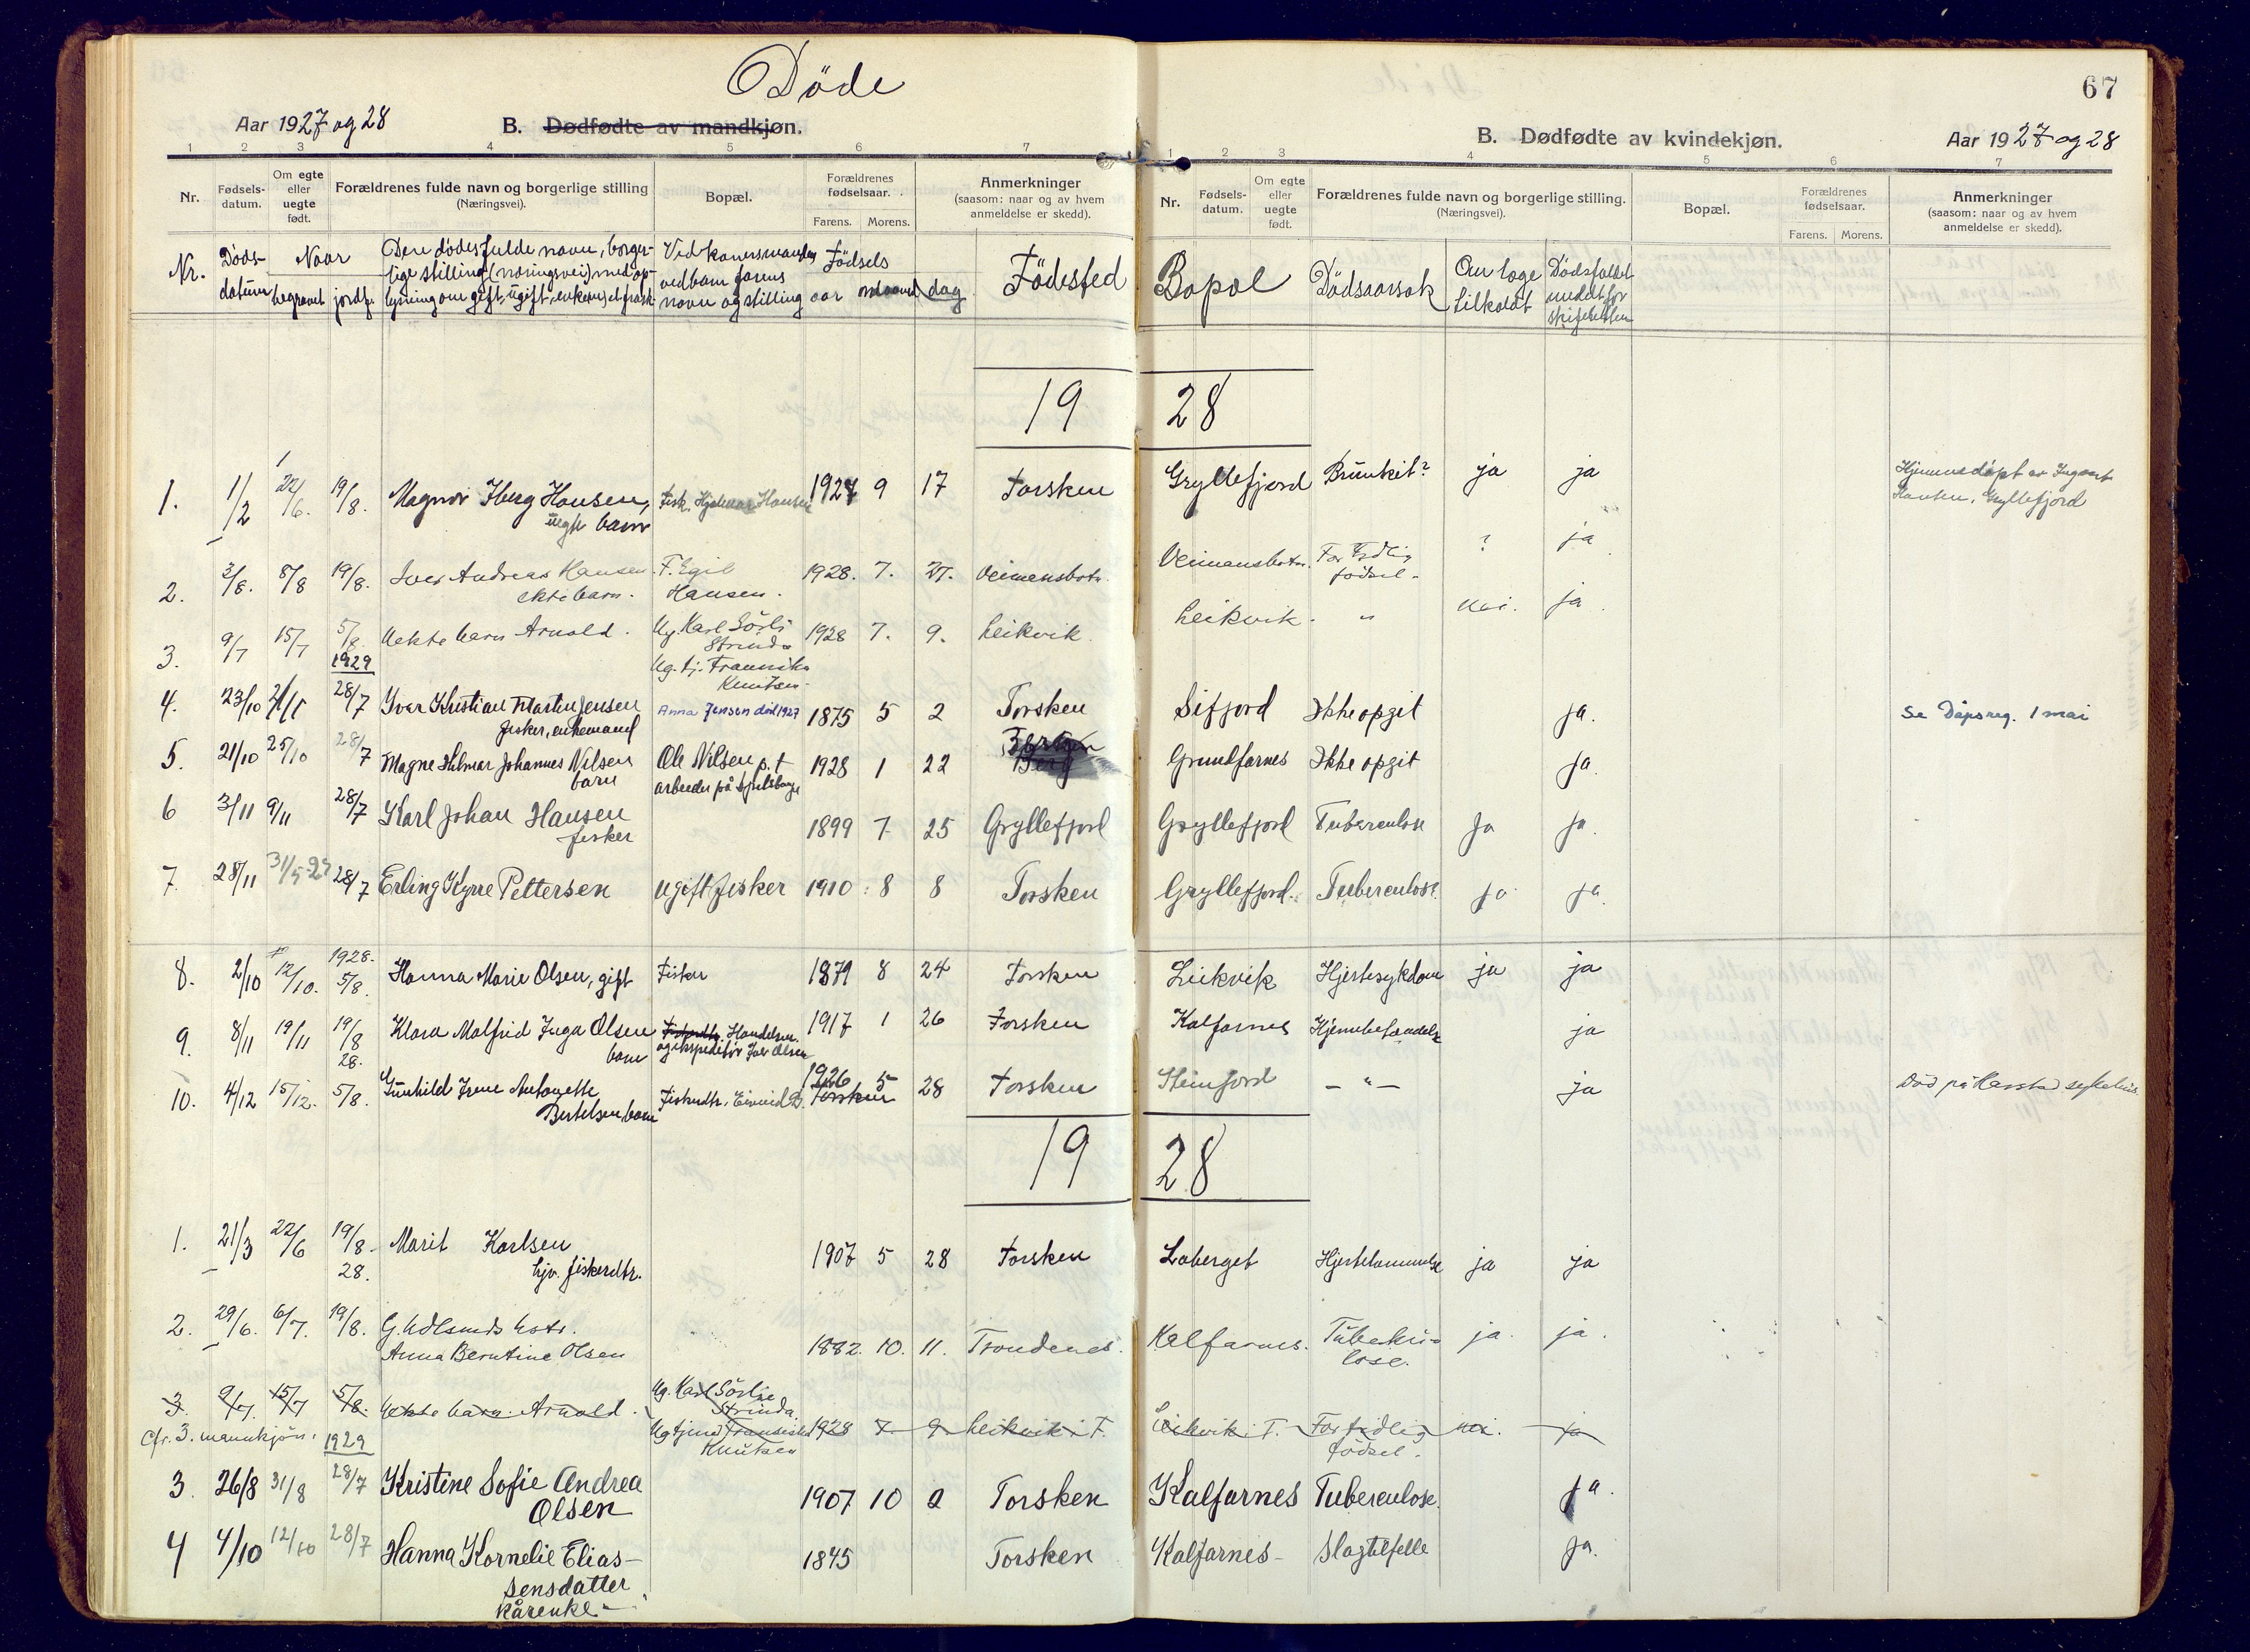 Døde
67
Aar 1927 og 28
B. Dødfødte av mandkjøn.
B. Dødfødte av kvindekjøn.
Aar 1927 og 28
1 2 3 4 5 6 7
1 2 3 4 5 6 7
Nr. Fødsels-datum. Om egte eller uegte født. Forældrenes fulde navn og borgerlige stilling (Næringsvei). Bopæl. Forældrenes fødselsaar. Farens. Morens. Anmerkninger (saasom: naar og av hvem anmeldelse er skedd).
Nr. Fødsels-datum. Om egte eller uegte født. Forældrenes fulde navn og borgerlige stilling. (Næringsvei). Bopæl. Forældrenes fødselsaar. Farens. Morens. Anmerkninger (saasom: naar og av hvem anmeldelse er skedd).
Nr. Døds-datum Naar begravet jordf. Den dødes fulde navn, borgerlige stilling (næringsvei) med oplysning om gift, ugift, enkem, navn og stilling Fødsels aar maaned dag Fødested Bopæl Dødsaarsak Om læge tilkaldt Dødsfaldet meldt for skifteretten
1928
1. 1/2 22/6. 19/8. Magnor Iberg Hansen, uegte barn Fisk. Hjalmar Hansen 1927 9 17 Torsken Gryllefjord Brunkit? ja ja Hjemmedøpt av Ingvart Hansen, Gryllefjord
2. 3/8. 8/8 19/8. Iver Andreas Hansen ekte barn. F. Egil Hansen. 1928. 7. 27. Veimensbotn. Veimansbotn. For tidlig fødsel. ? ja
3. 9/7 15/7 5/8. Uekte barn Arnold. Ug. Karl Sörli Strinda Ug. tj. Knutsen 1928 7. 9. Leikvik Leikvik. " nei. ja.
1929
4. 23/10 28/7 Yvar Kristian Martin Jensen fisker, enkemand Anna Jensen död 1927 1875 5 2 Torsken Sifjord Ikke opgit ja. Se Dåpsreg. 1 mai
5. 21/10 25/10 28/7 Magne Hilmar Johannes Nilsen barn Ole Nilsen p.t arbeider på 1928 1 22 Berg Grunnfarnes Ikke opgit ja.
6 3/11 9/11 28/7 Karl Johan Hansen fisker 1899 7 25 Gryllefjord Gryllefjord Tuberculose ja ja.
7. 28/11 28/7 Erling Kyrre Pettersen ugift fisker 1910 8 8 Torsken Gryllefjord Tuberculose ja ja.
1928.
8. 2/10 12/10. 5/8. Hanna Marie Olsen, gift Fisker 1879 8 24 Torsken Leikvik Hjertesykdom ja ja
9. 8/11 19/11 19/8 28. Klara Malfrid Inga Olsen barn Handelsm. og ekspeditør Olsen 1917 1 26 Torsken Kalfarnes ja
10. 4/12 15/12. 5/8. Gunhild Irene Antonette Bertelsen, barn Fiskerdtr. Eivind B. 1926 5 28 Torsken Steinfjord — " — ja Död på Harstad sykehus.
1928
1. 21/3 22/6 19/8 28. Marit Karlsen hjv. fiskerdtr. 1907 5 28 Torsken Laberget Hjertelammelse ja ja
2. 29/6. 6/7. 19/8. Anna Berntine Olsen 1882. 10. 11. Trondenes. Kalfarnes. Tuberkulose. ja. ja.
3. 9/7. 15/7 5/8. Uekte barn Arnold. Ug. Karl Sörlie Strinda. Ug tjener Knutsen 1928 7 9 Leikvik i T. Leikvik i T. For tidlig fødsel. nei. ja
Cfr. 3. mannkjön. 1929
3. 26/8 31/8 28/7 Kristine Sofie Andrea Olsen 1907 10 2 Torsken Kalfarnes Tuberculose. ja.
4 4/10 12/10 28/7 Hanna Kornelie Elias-sensdatter kårenke 1845 Torsken Kalfarnes Slagtilfelle ja.